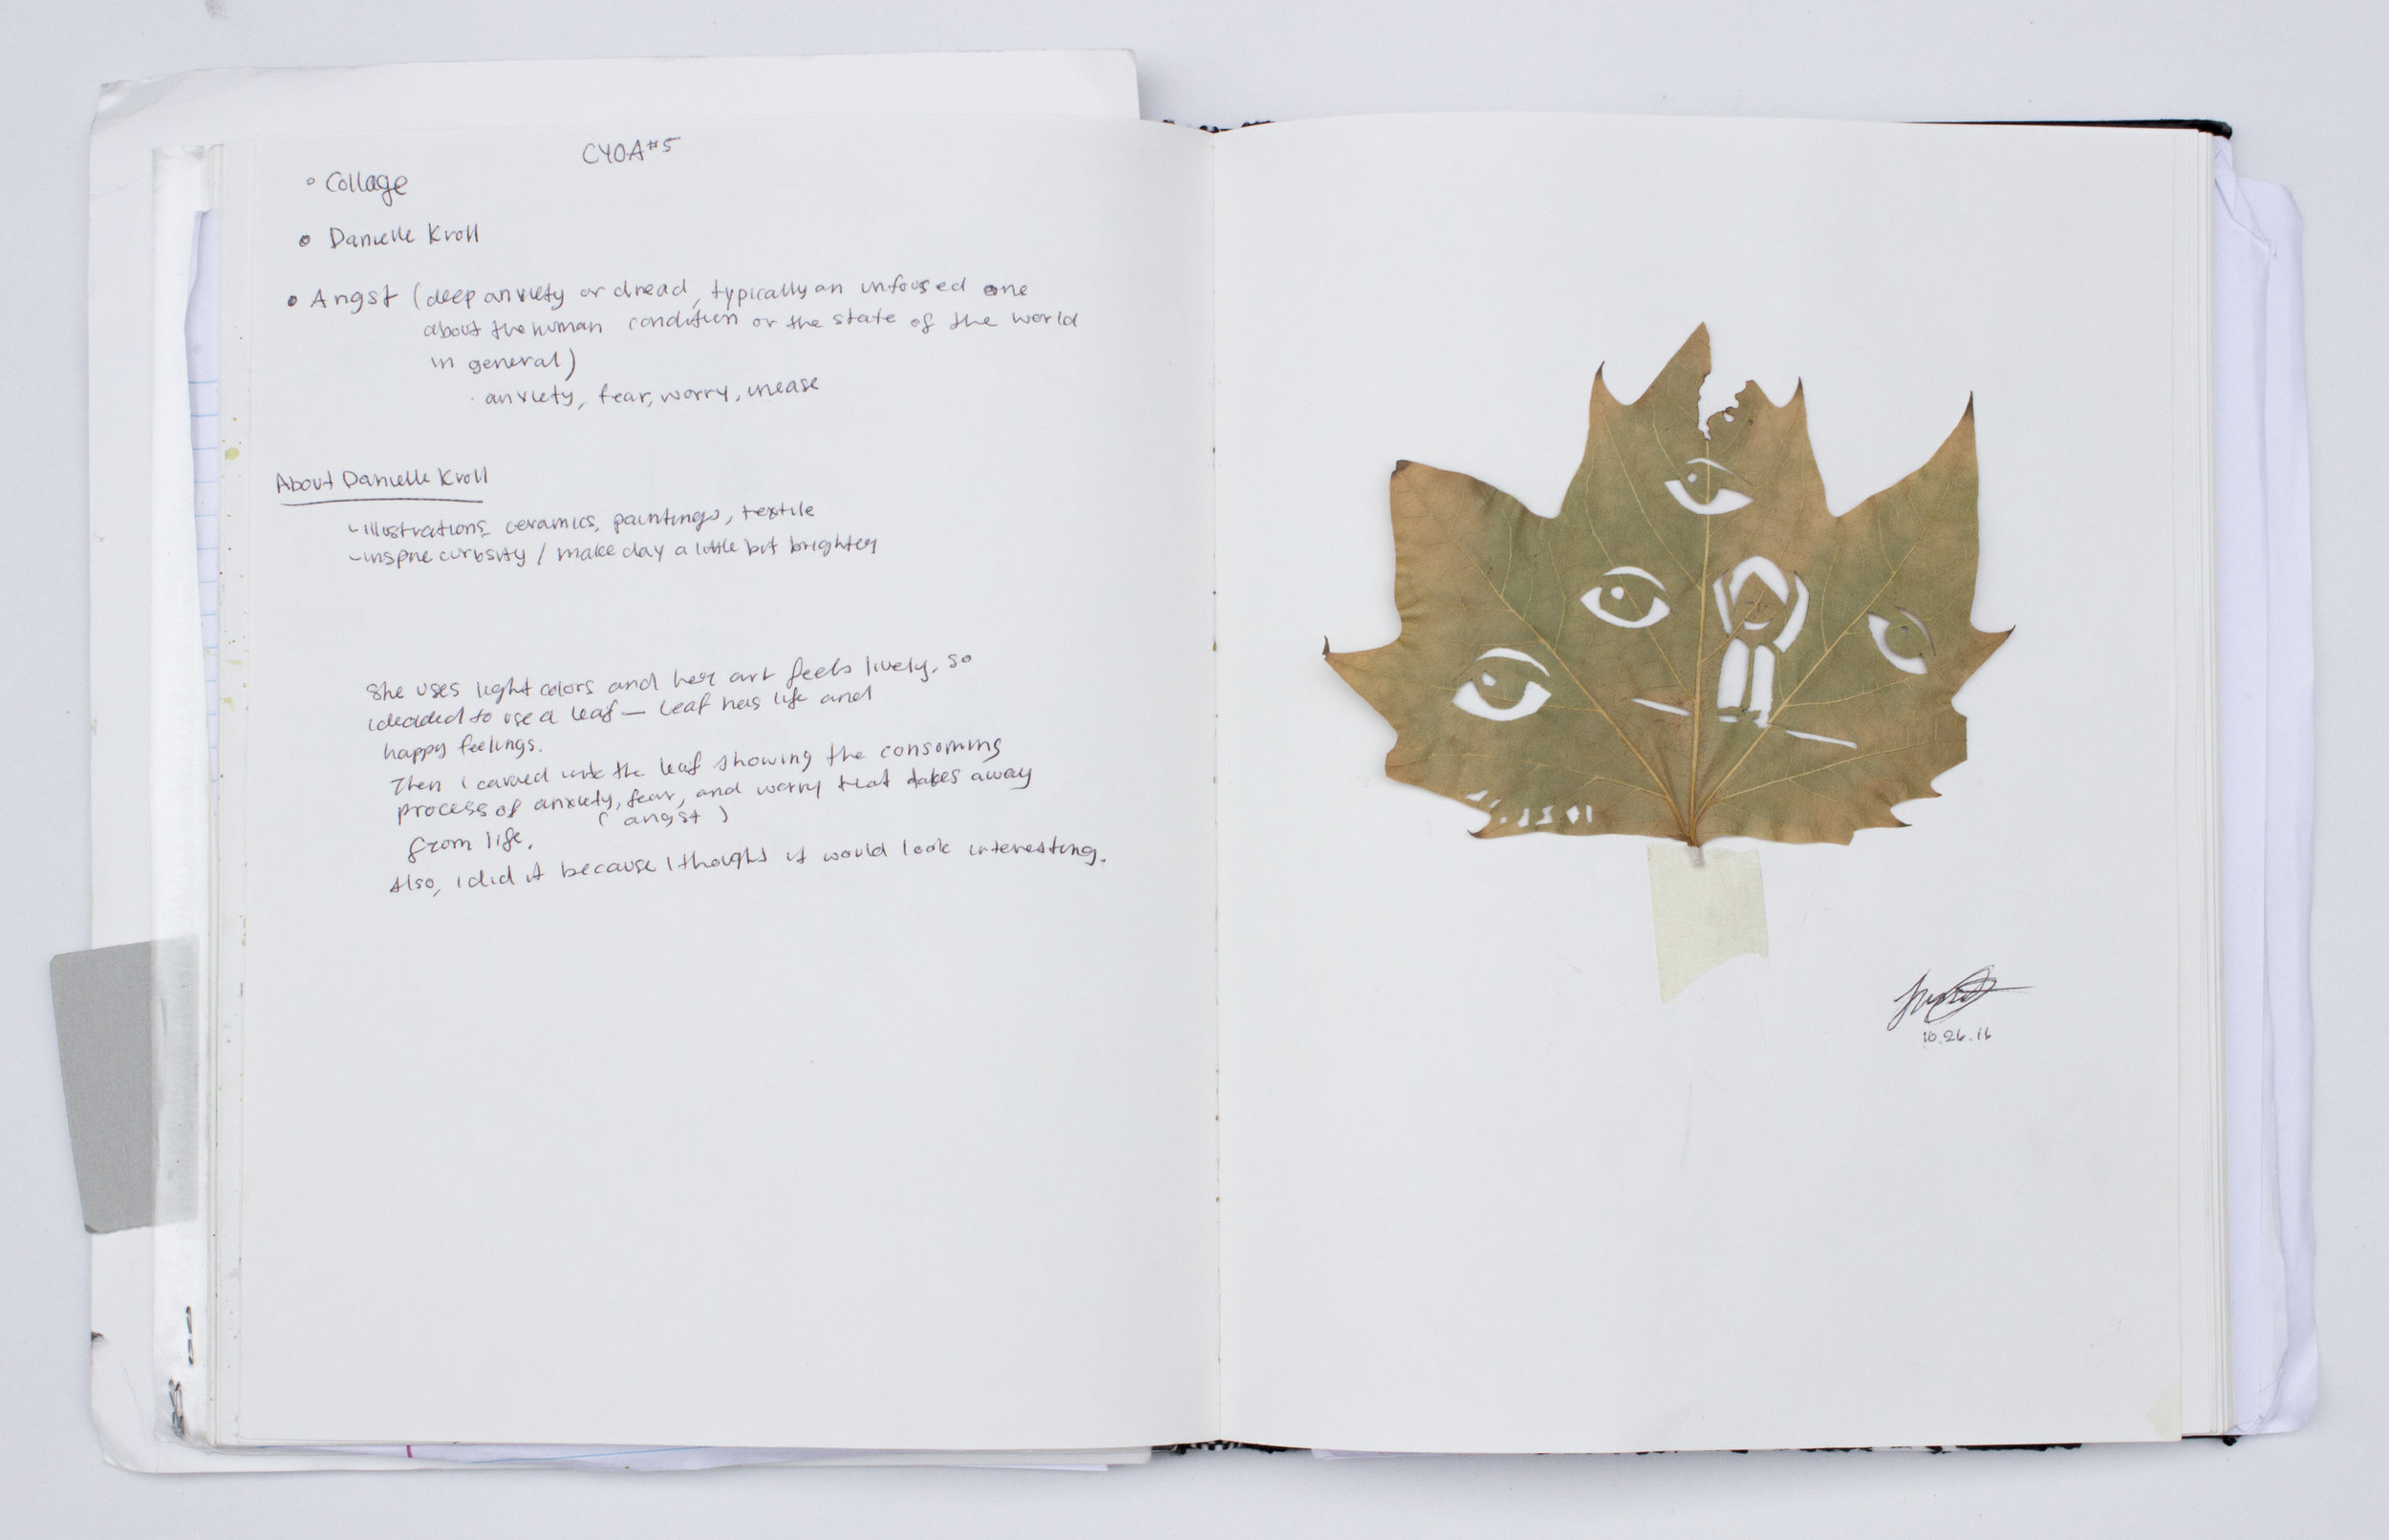 CYOA #5
◦ Collage
• Danielle Kroll
• Angst (deep anxiety or dread, typically an unfocused one
about the human condition or the state of the world
in general)
· anxiety, fear, worry, unease
About Danielle Kroll
- illustrations, ceramics, paintings, textile
- inspire curiosity / make day a little bit brighter
She uses light colors and her art feels lively. so
i decided to use a leaf — leaf has life and
happy feelings.
Then i carved into the leaf showing the consoming
process of anxiety, fear, and worry that takes away
(angst)
from life.
Also, i did it because I thought it would look interesting.
10.26.16